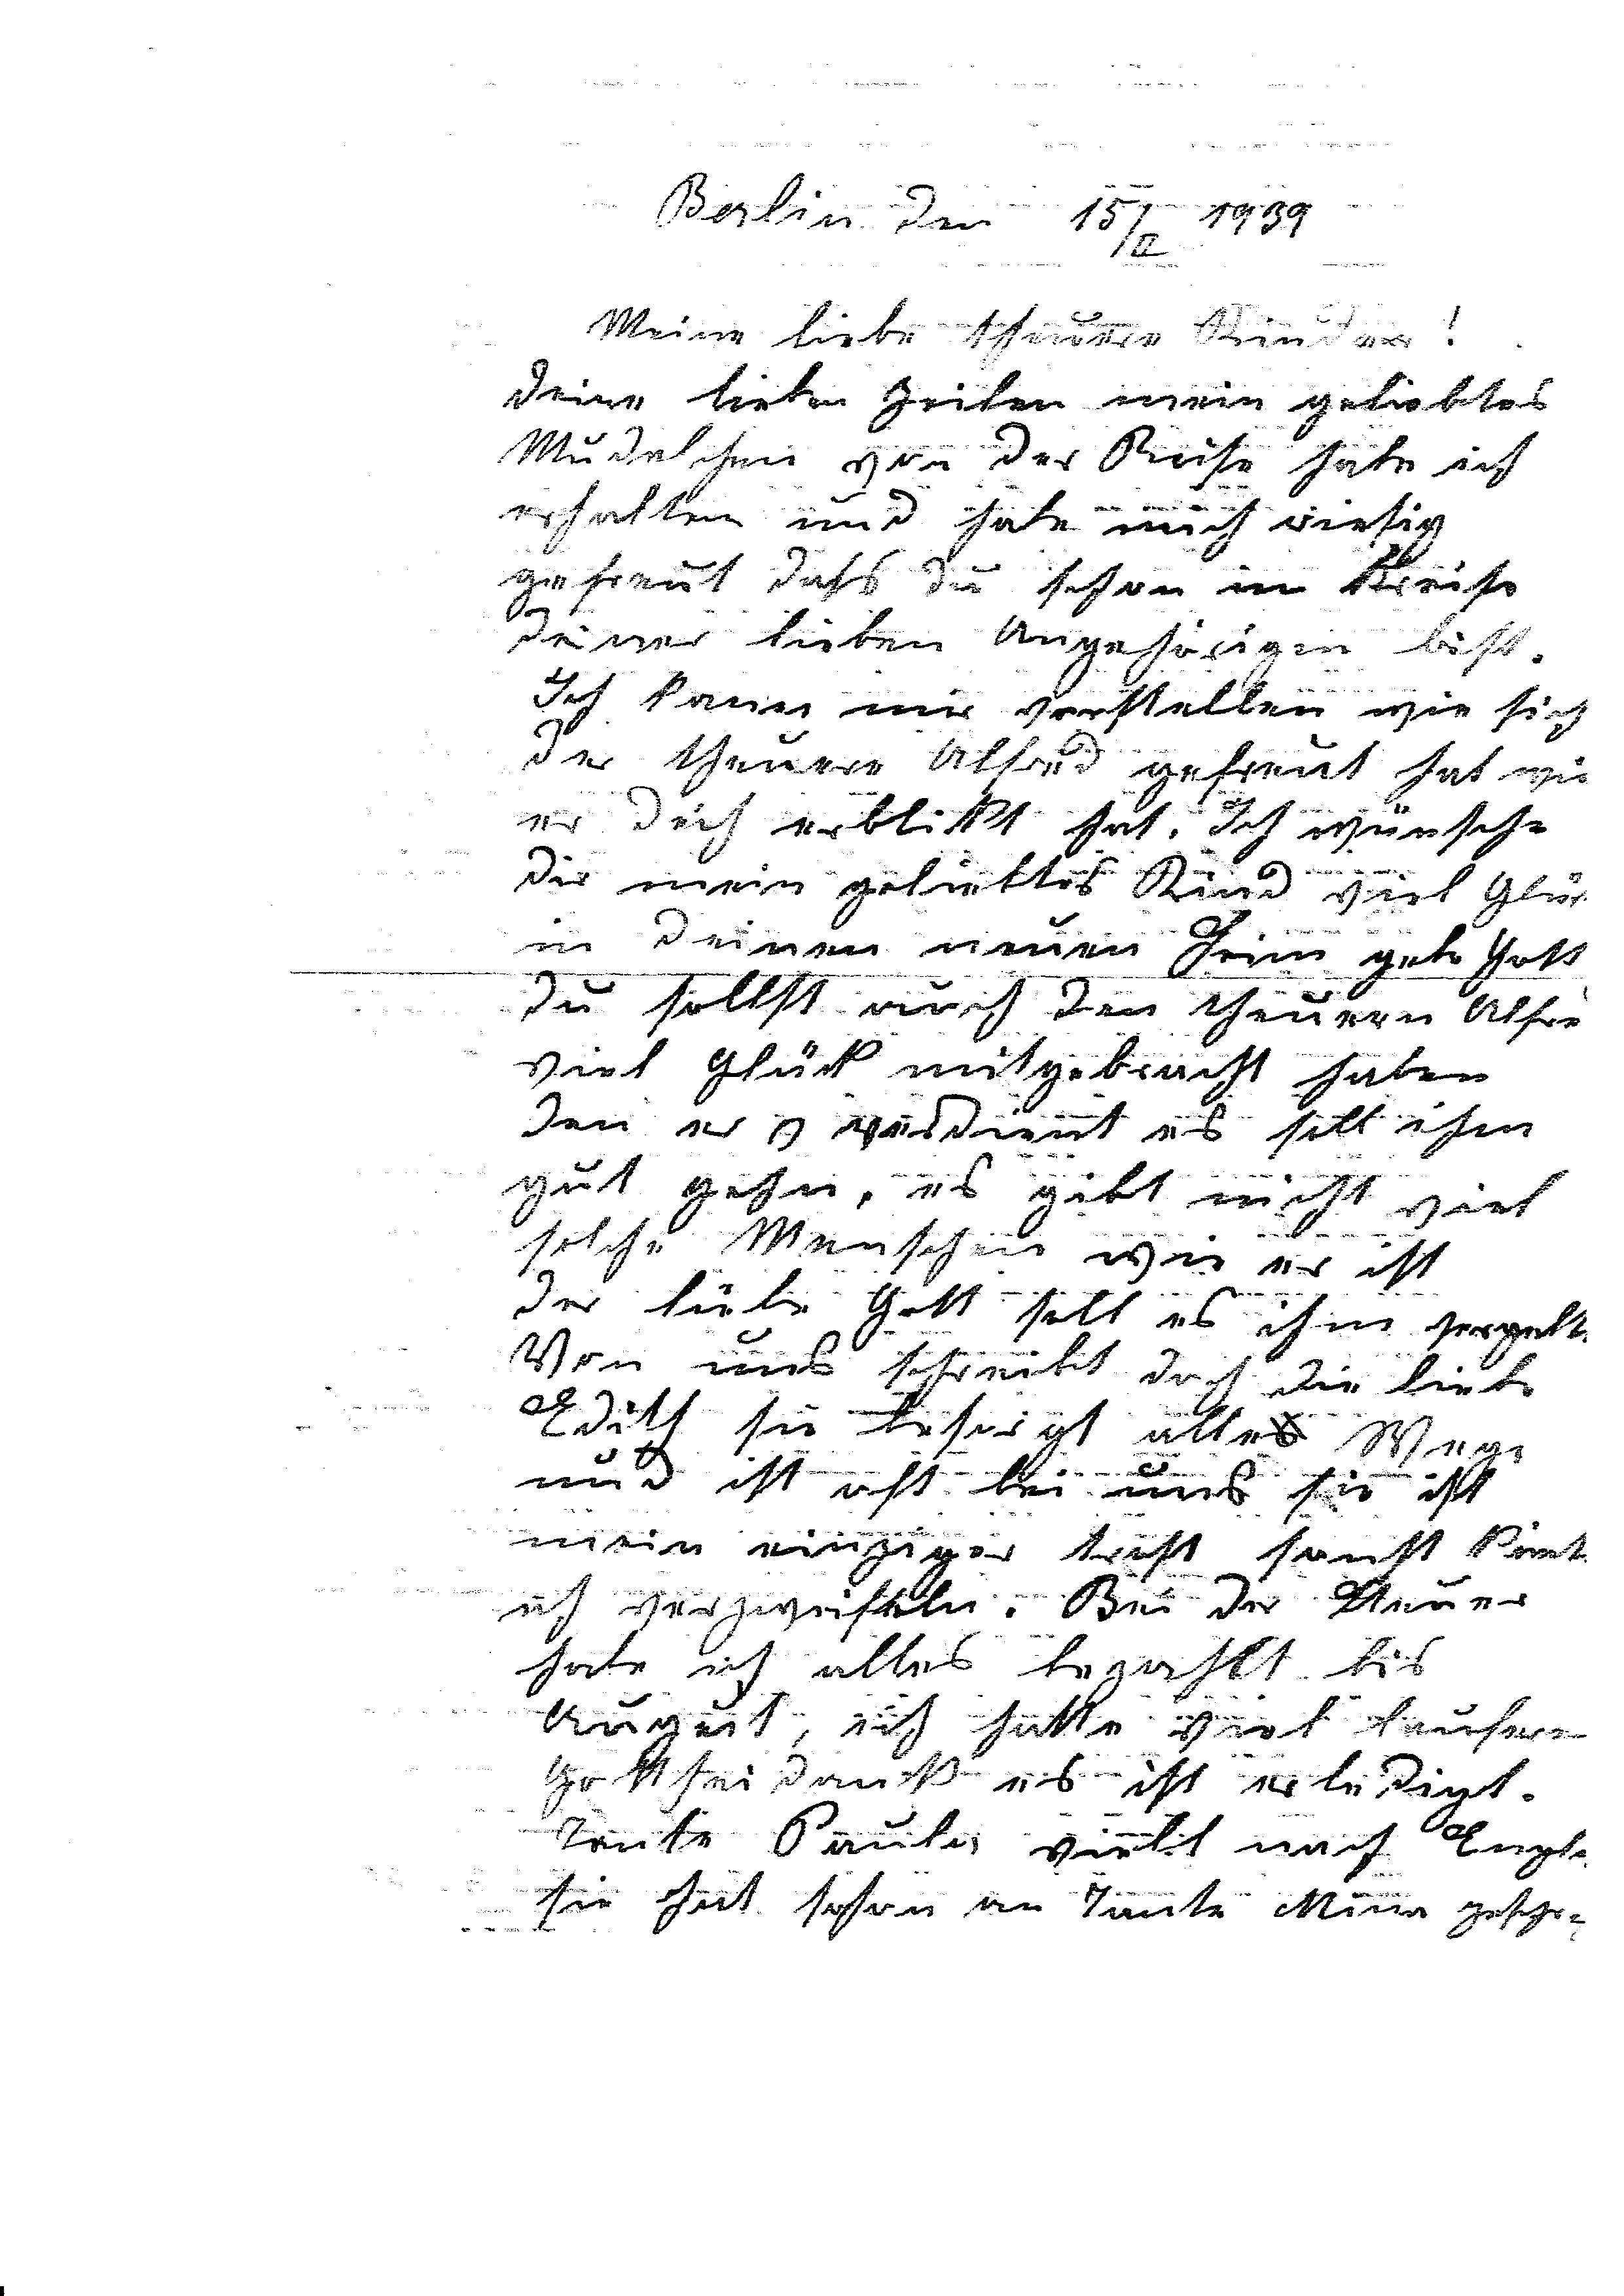 Berlin den 15/II 1939
Meine liebe theuere Kinder!
deine lieben Zeilen mein geliebtes
Mudelchen von der Reise habe ich
erhalten und habe mich riesig
gefreut dass du schon im Kreise
deiner lieben Angehörigen bist.
Ich kann mir vorstellen wie sich
der theuere Alfred gefreut hat wie
er dich erblikt hat. Ich wünsche
dir mein geliebtes Kind viel Glük
in deinen neuen Heim gebe Gott
du sollst auch den theuern Alfre
viel Glück mitgebracht haben
den er verdient es soll ihm
gut gehn, es gibt nicht viel
solche Menschen wie er ist
der liebe Gott soll es ihm fergelt
Von uns schreibt doch die liebe
Edith sie besorgt alle Wege
und ist oft bei uns sie ist
mein einziger trost sonst könt
ich verzweifeln. Bei der Steuer
habe ich alles bezahlt bis
August, ich hatte viel laufere
Gott sei dank es ist erledigt.
Tante Paula viellt nach Engla
sie hat schon an Tante Mina geschr=